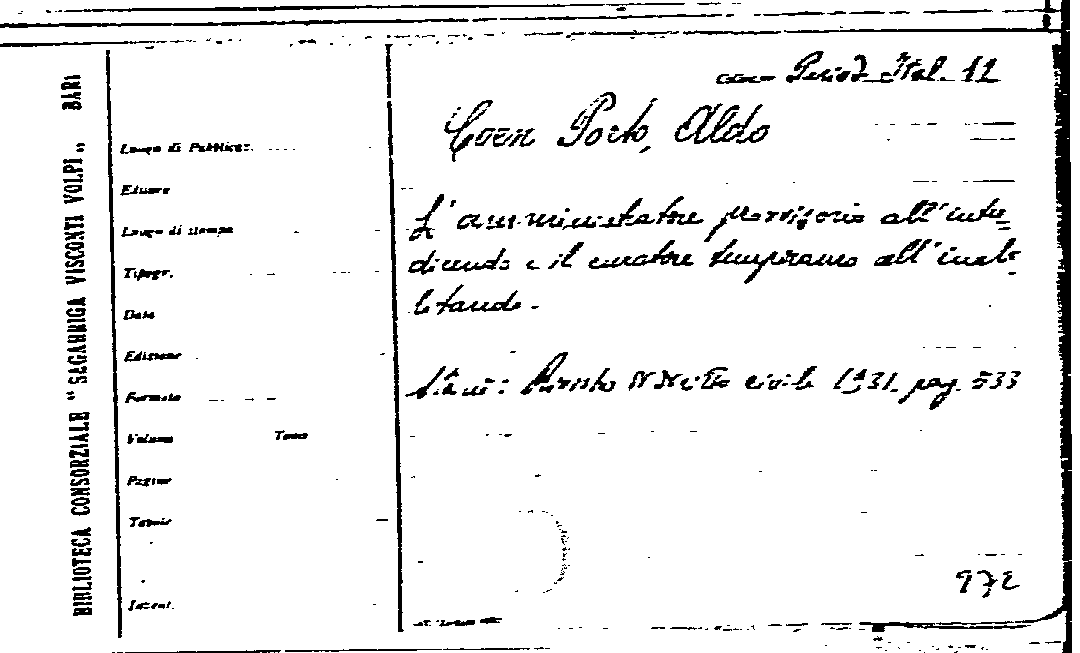 BIBLIOTECA CONSORZIALE "SAGARRIGA VISCONTI VOLPI„ BARI
Luogo di Pubblicaz.
Editore
Luogo di stampa
Tipogr.
Data
Edizione
Formato
Volume Tomo
Pagine
Tavole
Invent.
Period. Ital. 12
Coen Porto, Aldo
L'amministratore provvisorio all'inter=
dicendo e il curatore temporaneo all'inabi-
litando.
Rivista Diritto civile 1931. pag. 533
972